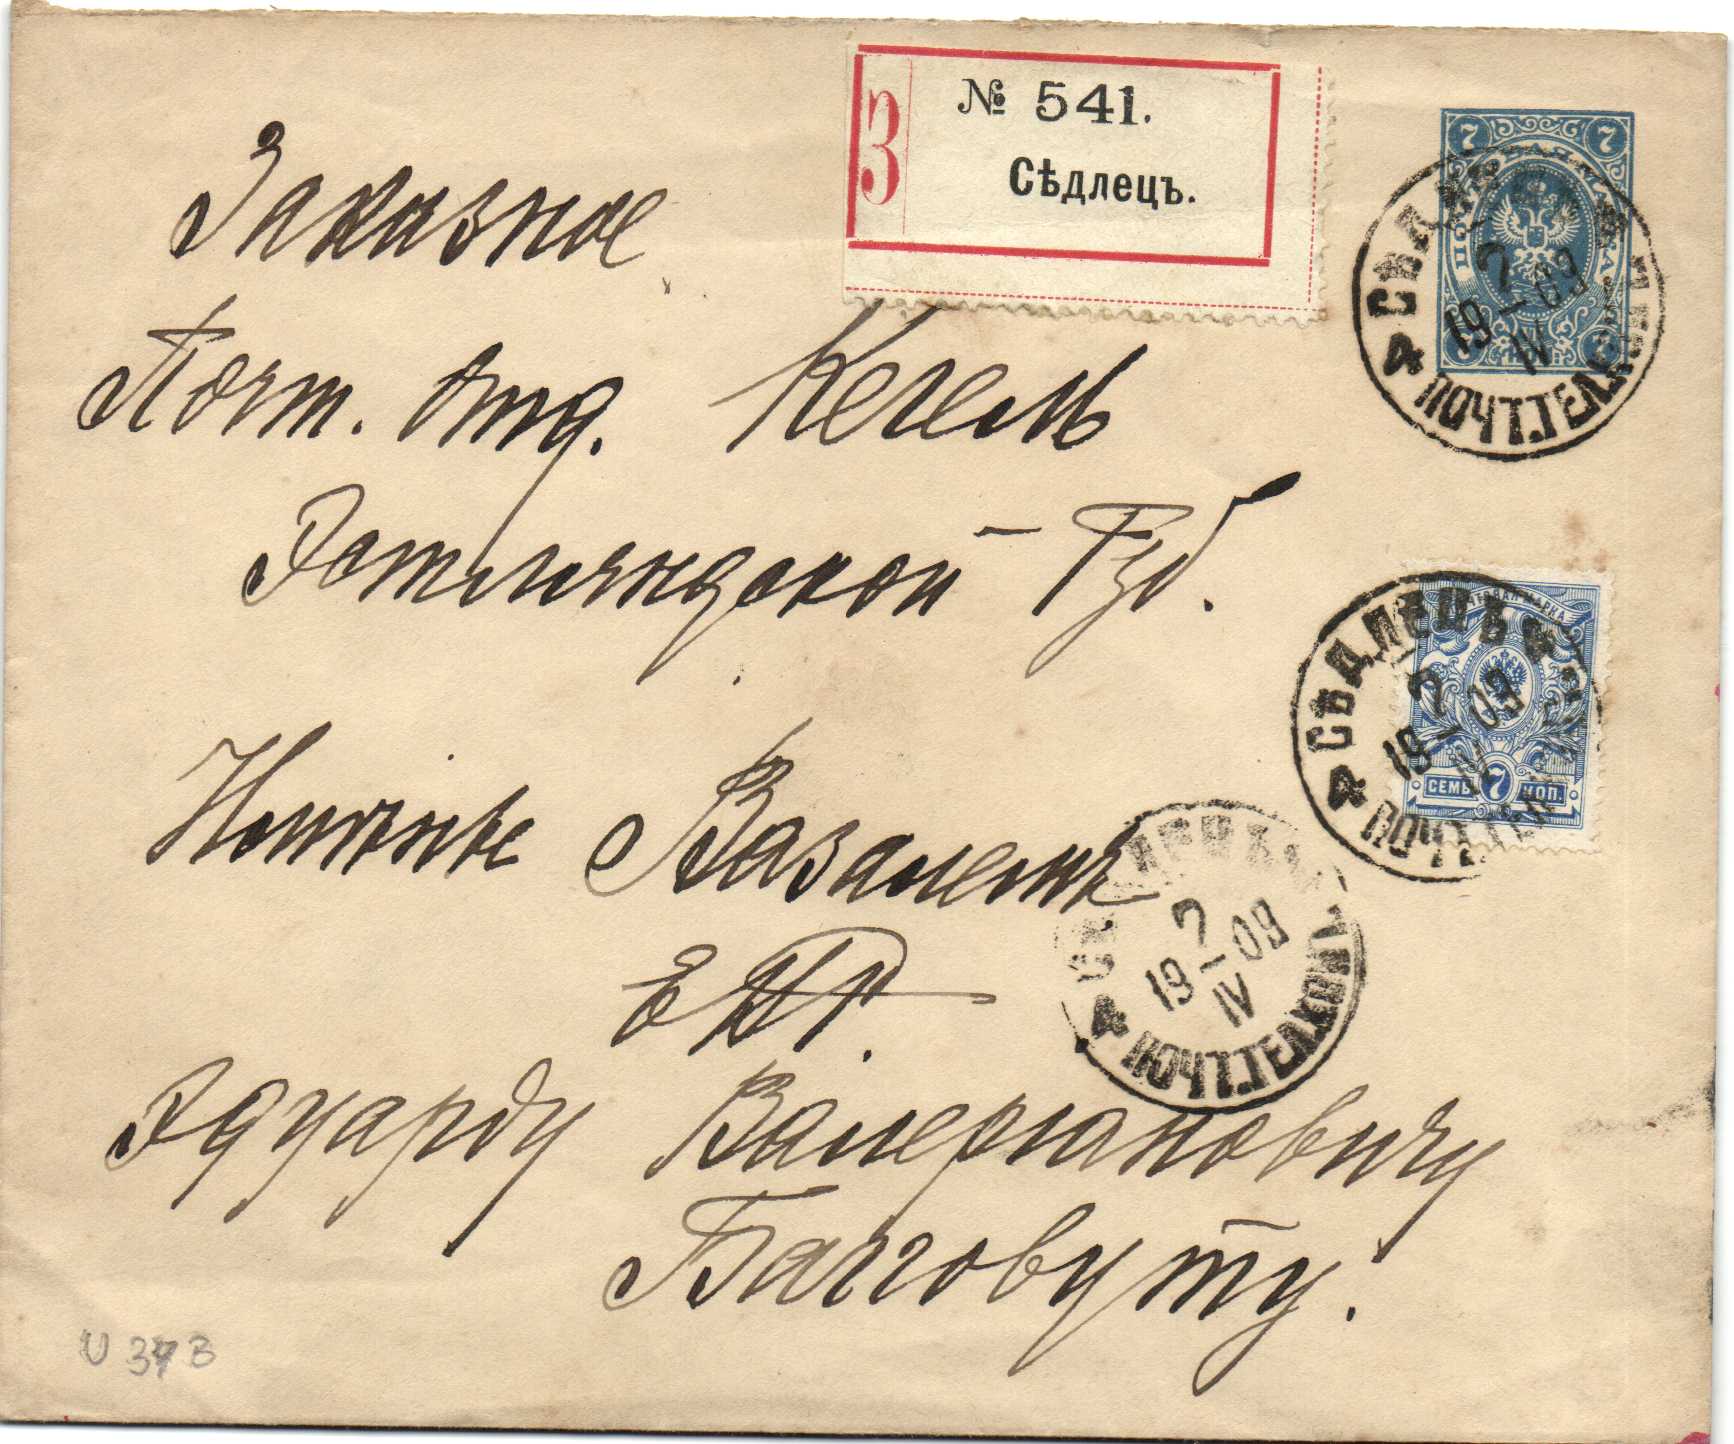 № 541.
З
Сѣдлецъ.
7 7
СѢДЛЕЦЪ
2
19–09
IV
4 ПОЧ.ТЕЛ.К
Заказное
Почт. Отд. Кегель
Эстляндской Губ.
СѢДЛЕЦЪ 4
2
19–09
IV
4
СЕМЬ 7 КОП.
Имѣніе Вазалемъ
СѢДЛЕЦЪ
2
19–09
IV
4
Е.В.Г.
Эдуарду Валеріановичу
Багговуту.
U 37 B